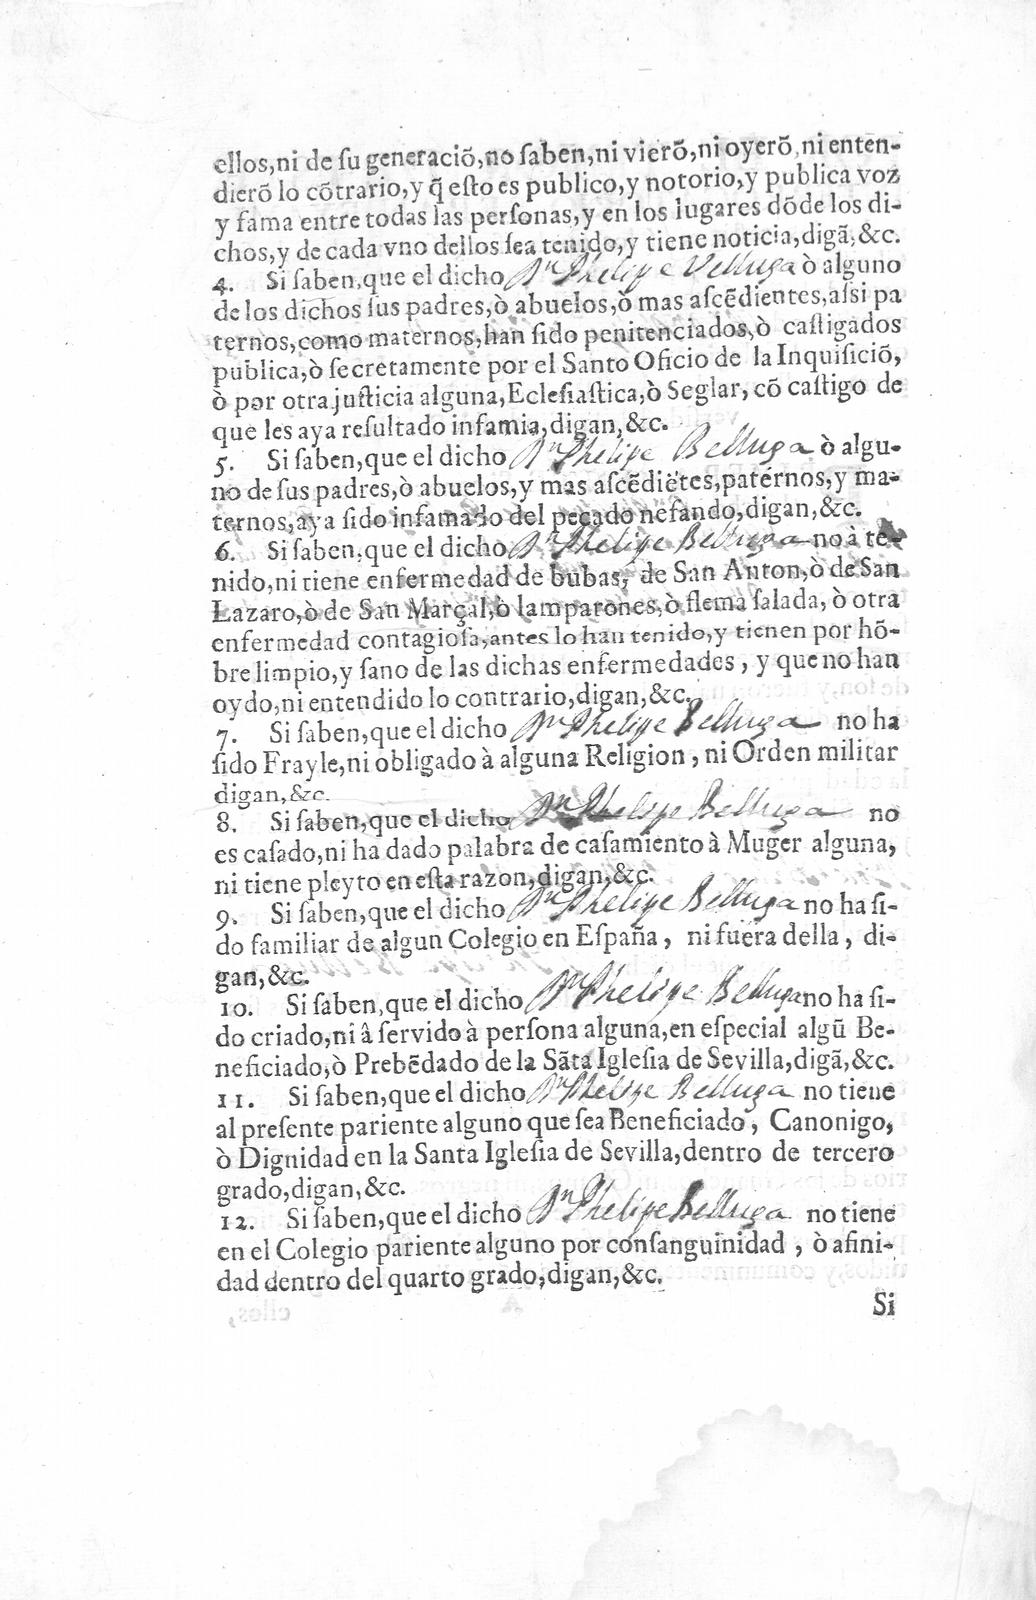 ellos,ni de ſu generaciõ,no ſaben,ni vierõ,ni oyerõ,ni enten-
dierõ lo cõtrario,y q̃ eſto es publico,y notorio,y publica voz
y fama entre todas las perſonas,y en los lugares dõde los di-
chos,y de cada vno dellos ſea tenido,y tiene noticia,digã,&c.
4. Si ſaben,que el dicho Dn Phelipe Velluga ò alguno
de los dichos ſus padres,ò abuelos,ò mas aſcẽdientes,aſsi pa
ternos,como maternos,han ſido penitenciados,ò caſtigados
publica,ò ſecretamente por el Santo Oficio de la Inquiſiciõ,
ò por otra juſticia alguna,Ecleſiaſtica,ò Seglar,cõ caſtigo de
que les aya reſultado infamia,digan,&c.
5. Si ſaben,que el dicho Dn Phelipe Belluga ò algu-
no de ſus padres,ò abuelos,y mas aſcẽdiẽtes,paternos,y ma-
ternos,aya ſido infamado del pecado nefando,digan,&c.
6. Si ſaben,que el dicho Dn Phelipe Belluga no à te-
nido,ni tiene enfermedad de bubas, de San Anton,ò de San
Lazaro,ò de San Marçal,ò lamparones,ò flema ſalada, ò otra
enfermedad contagioſa,antes lo han tenido,y tienen por hõ-
bre limpio,y ſano de las dichas enfermedades, y que no han
oydo,ni entendido lo contrario,digan,&c.
7. Si ſaben,que el dicho Dn Phelipe Belluga no ha
ſido Frayle,ni obligado à alguna Religion, ni Orden militar
digan,&c.
8. Si ſaben,que el dicho Dn Phelipe Belluga no
es caſado,ni ha dado palabra de caſamiento à Muger alguna,
ni tiene pleyto en eſta razon,digan,&c.
9. Si ſaben,que el dicho Dn Phelipe Belluga no ha ſi-
do familiar de algun Colegio en Eſpaña, ni fuera della, di-
gan,&c.
10. Si ſaben,que el dicho Dn Phelipe Belluga no ha ſi-
do criado,ni â ſervido à perſona alguna,en eſpecial algũ Be-
neficiado,ò Prebẽdado de la Sãta Igleſia de Sevilla,digã,&c.
11. Si ſaben,que el dicho Dn Phelipe Belluga no tiene
al preſente pariente alguno que ſea Beneficiado, Canonigo,
ò Dignidad en la Santa Igleſia de Sevilla,dentro de tercero
grado,digan,&c.
12. Si ſaben,que el dicho Dn Phelipe Belluga no tiene
en el Colegio pariente alguno por conſanguinidad, ò afini-
dad dentro del quarto grado,digan,&c.
Si